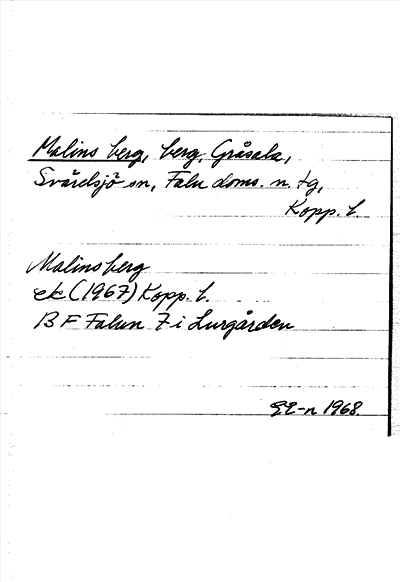 Malins berg, berg, Gråsala,
Svärdsjö sn, Falu doms. n. tg,
Kopp. l.
Malinsberg
ek (1967) Kopp. l.
13 F Falun 7 i Lurgården
EE-n 1968.